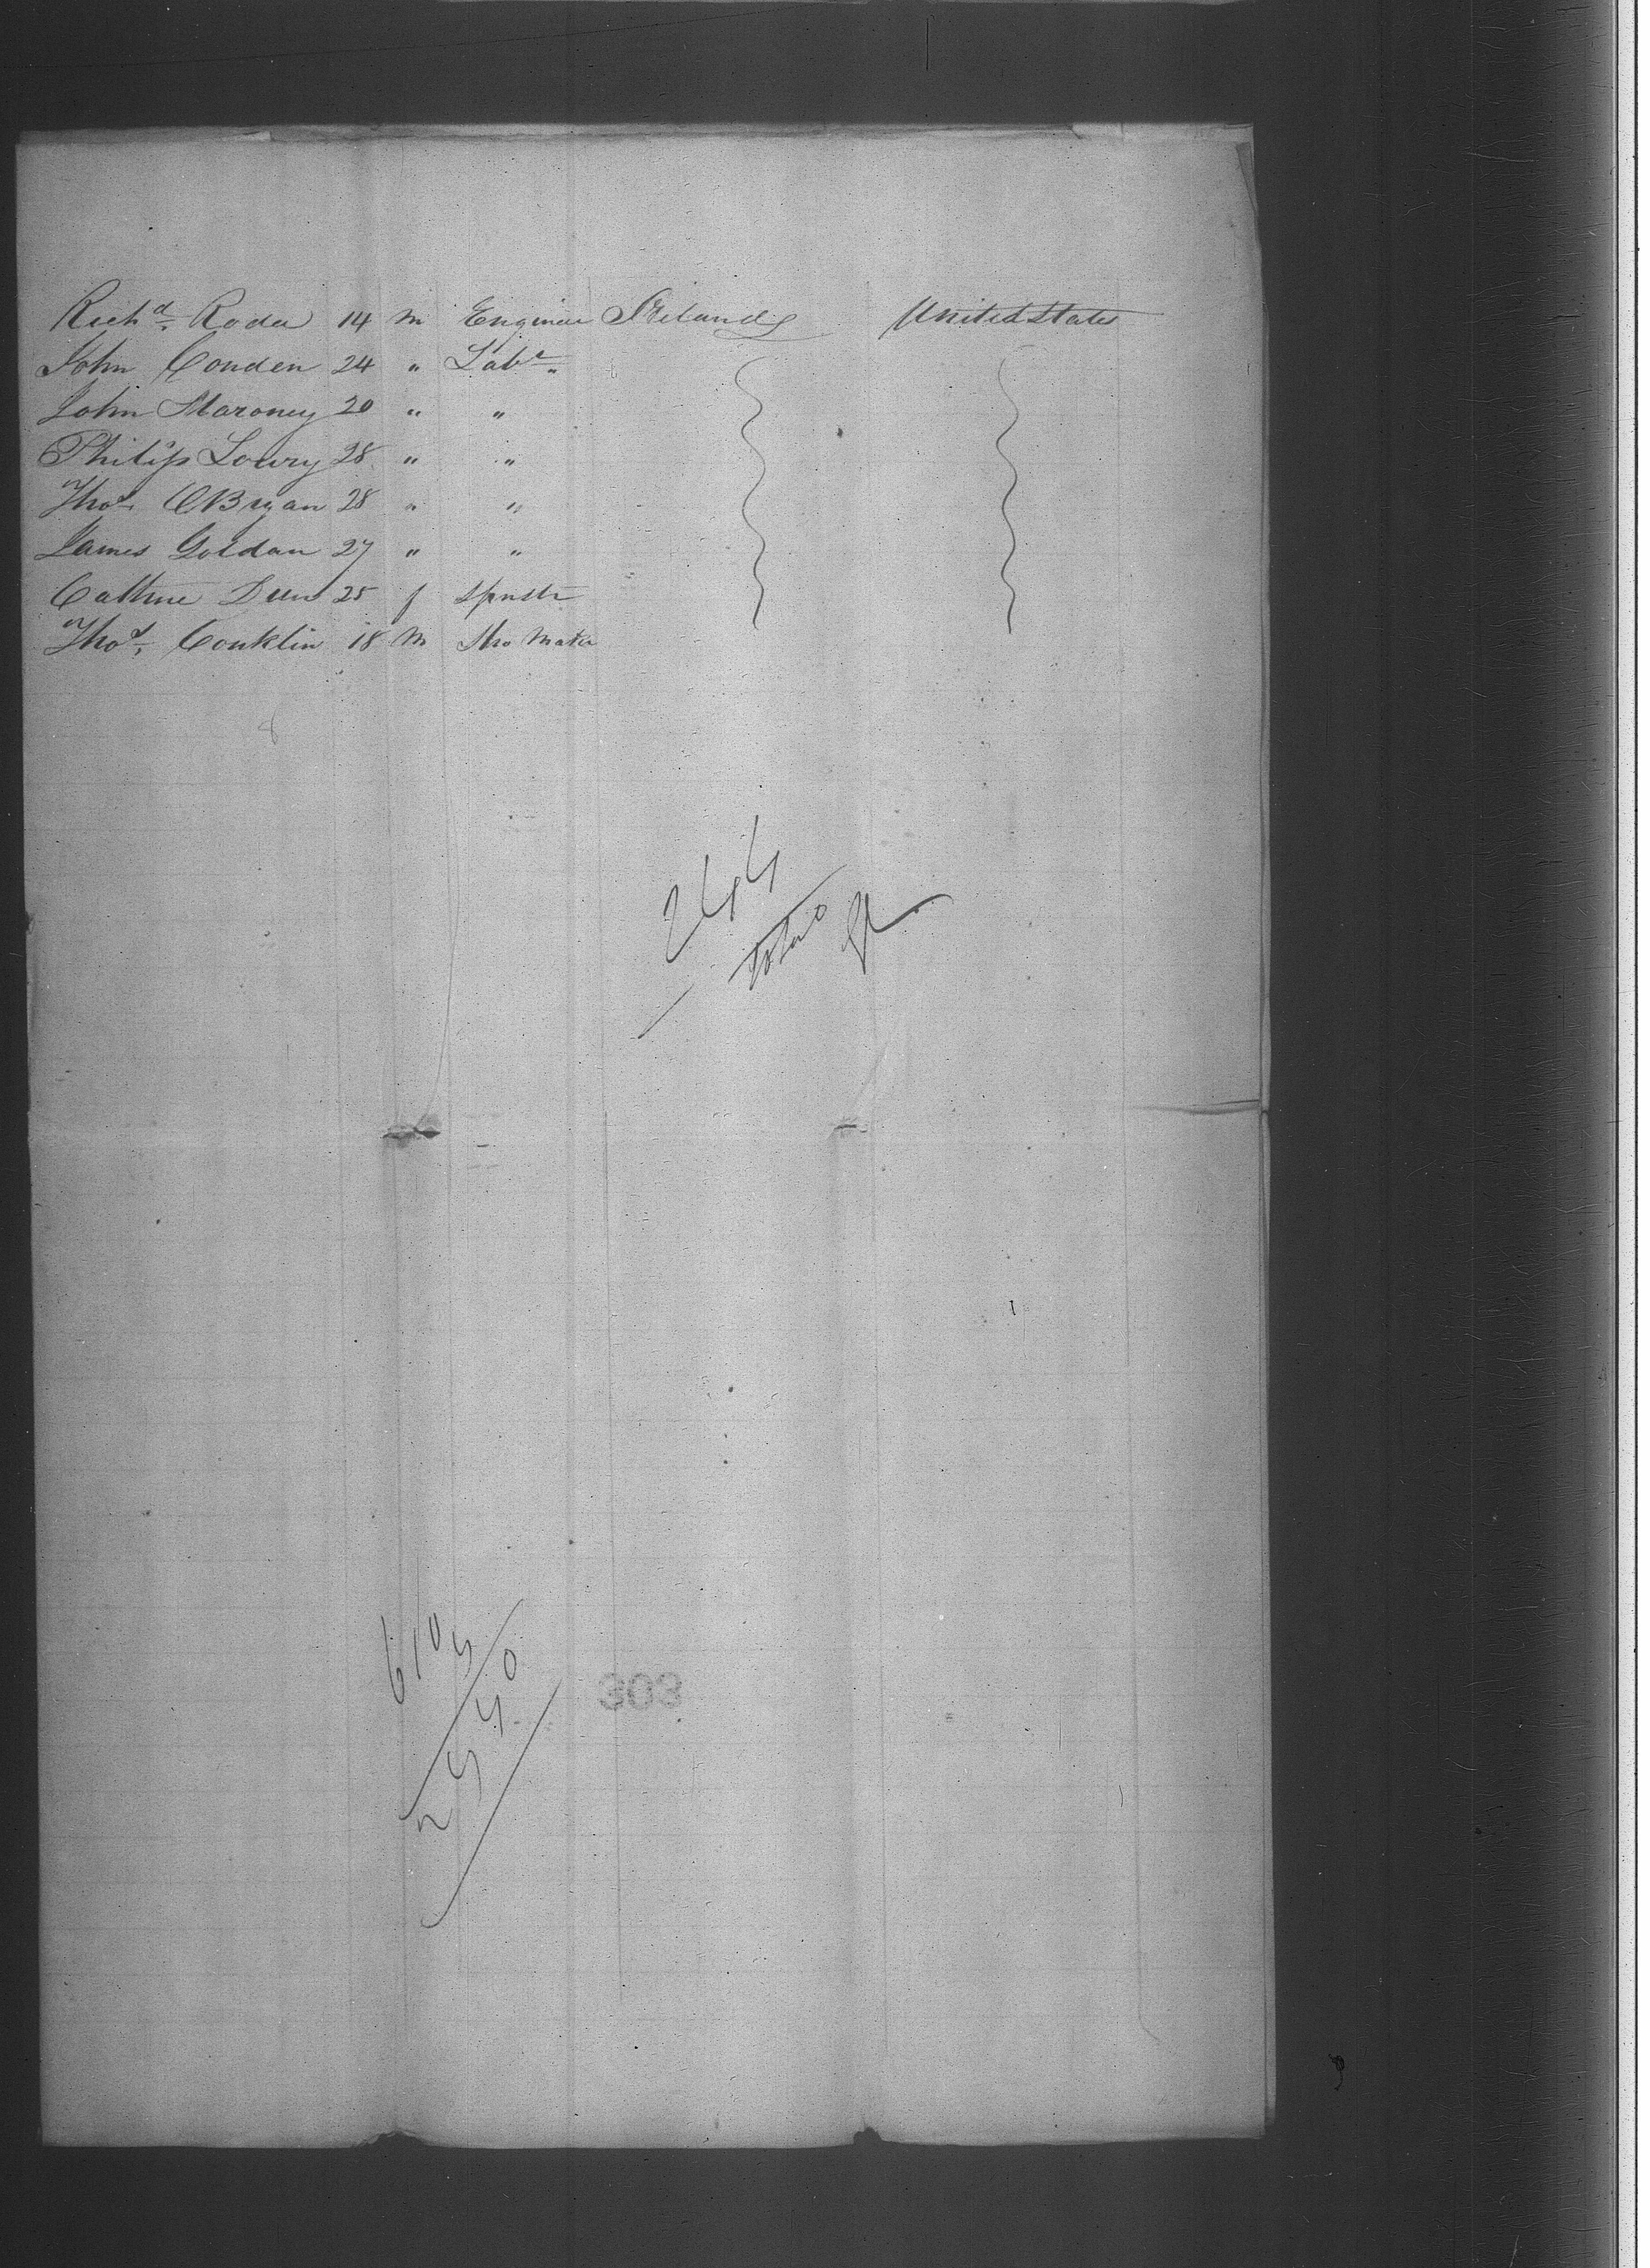 Richd. Roda 14 m Engineer Ireland United States
John Conden 24 " Labr. "
John Maroney 20 " "
Philip Lowry 28 " "
Thos. OBryan 28 " "
James Goldan 27 " "
Cathrne Dunn 25 f Spnstr
Thos. Conklin 18 M Sho Maker
244
303